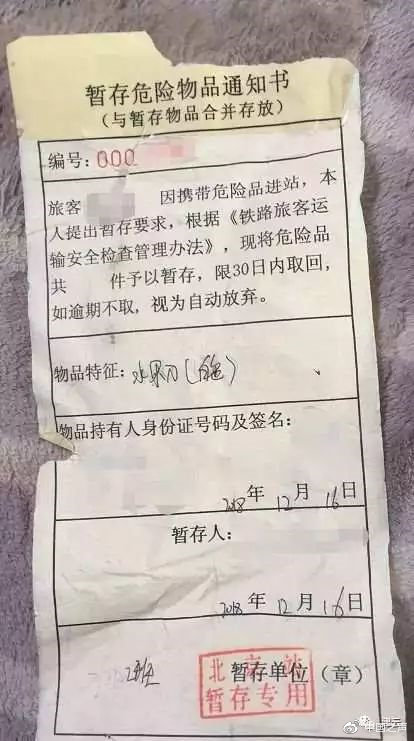 暂存危险物品通知书
（与暂存物品合并存放）
编号：000
旅客 因携带危险品进站，本
人提出暂存要求，根据《铁路旅客运
输安全检查管理办法》，现将危险品
共 件予以暂存，限30日内取回，
如逾期不取，视为自动放弃。
物品特征：水果刀（白色）
物品持有人身份证号码及签名：
2018年12月16日
暂存人：
2018年12月16日
2班
暂存单位（章）
北京站
暂存专用
中国之声